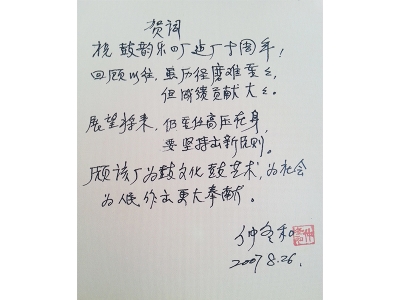 贺词
祝鼓韵乐四厂建厂十周年!
回顾以往,虽历经磨难至多,
但成绩贡献大之。
展望将来,仍重任高压在身,
要坚持出新原则。
愿该厂为鼓文化鼓艺术,为社会
为人民作出更大奉献。
仲冬和
2007 8.26.